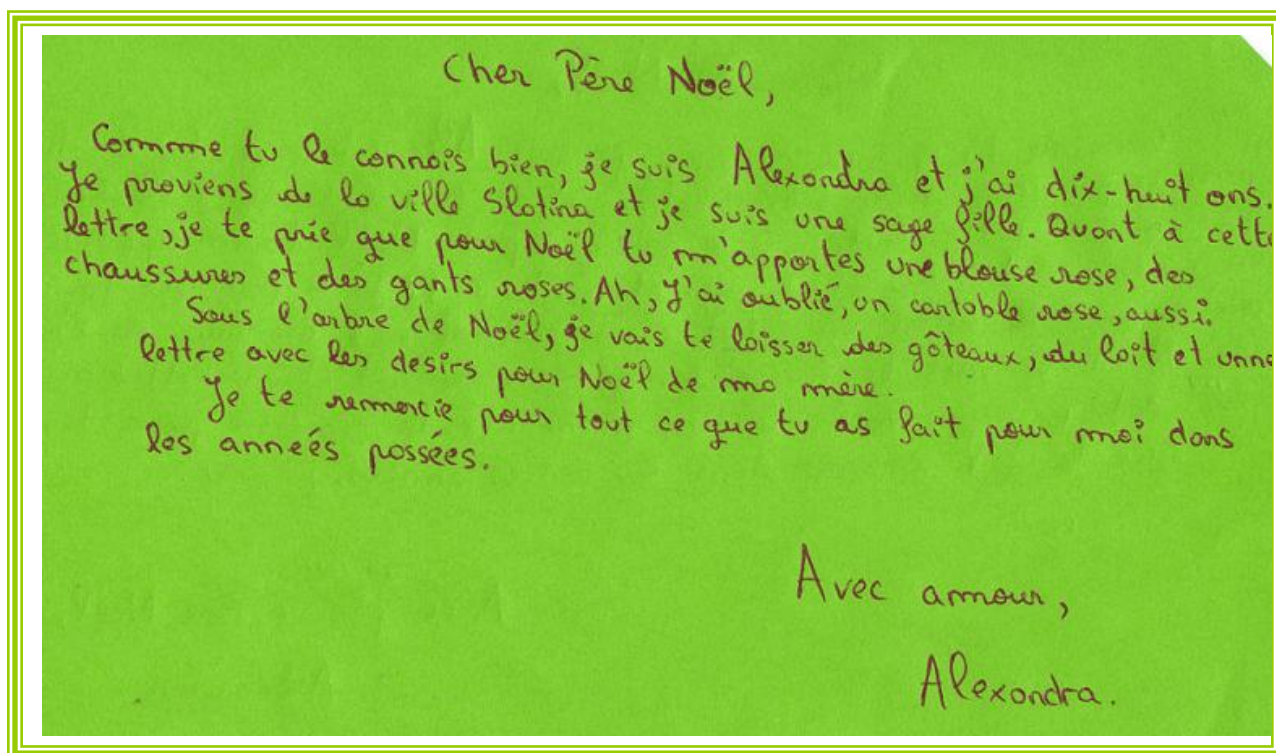 Cher Père Noël,
Comme tu le connais bien, je suis Alexandra et j'ai dix-huit ans.
Je proviens de la ville Slatina et je suis une sage fille. Quant à cette
lettre, je te prie que pour Noël tu m'apportes une blouse rose, des
chaussures et des gants roses. Ah, j'ai oublié, un cartable rose, aussi.
Sous l'arbre de Noël, je vais te laisser des gâteaux, du lait et unne
lettre avec les desirs pour Noël de ma mère.
Je te remercie pour tout ce que tu as fait pour moi dans
les anneés passées.
Avec amour,
Alexandra.